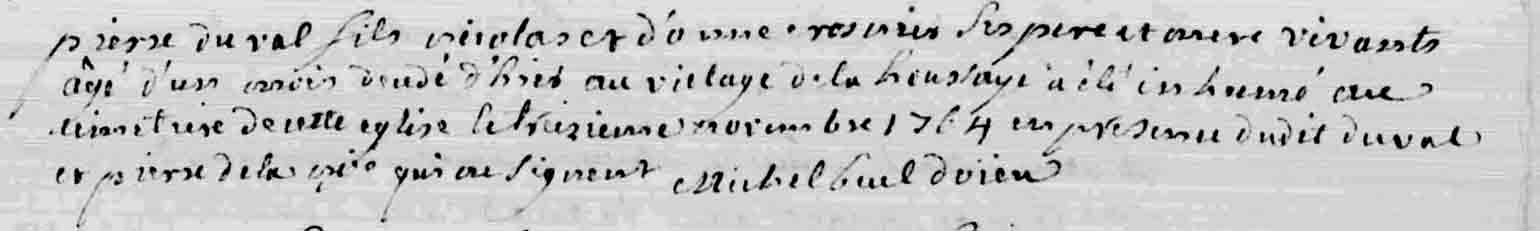 pierre duval fils nicolas et d'onne rosnier ses pere et mere vivants
âgé d'un mois décédé d'hier au village de la houssaye a été inhumé au
cimetiere de cette eglise le treizieme novembre 1764 en presence dudit duval
et pierre de la qui ne signent Michel buel doien